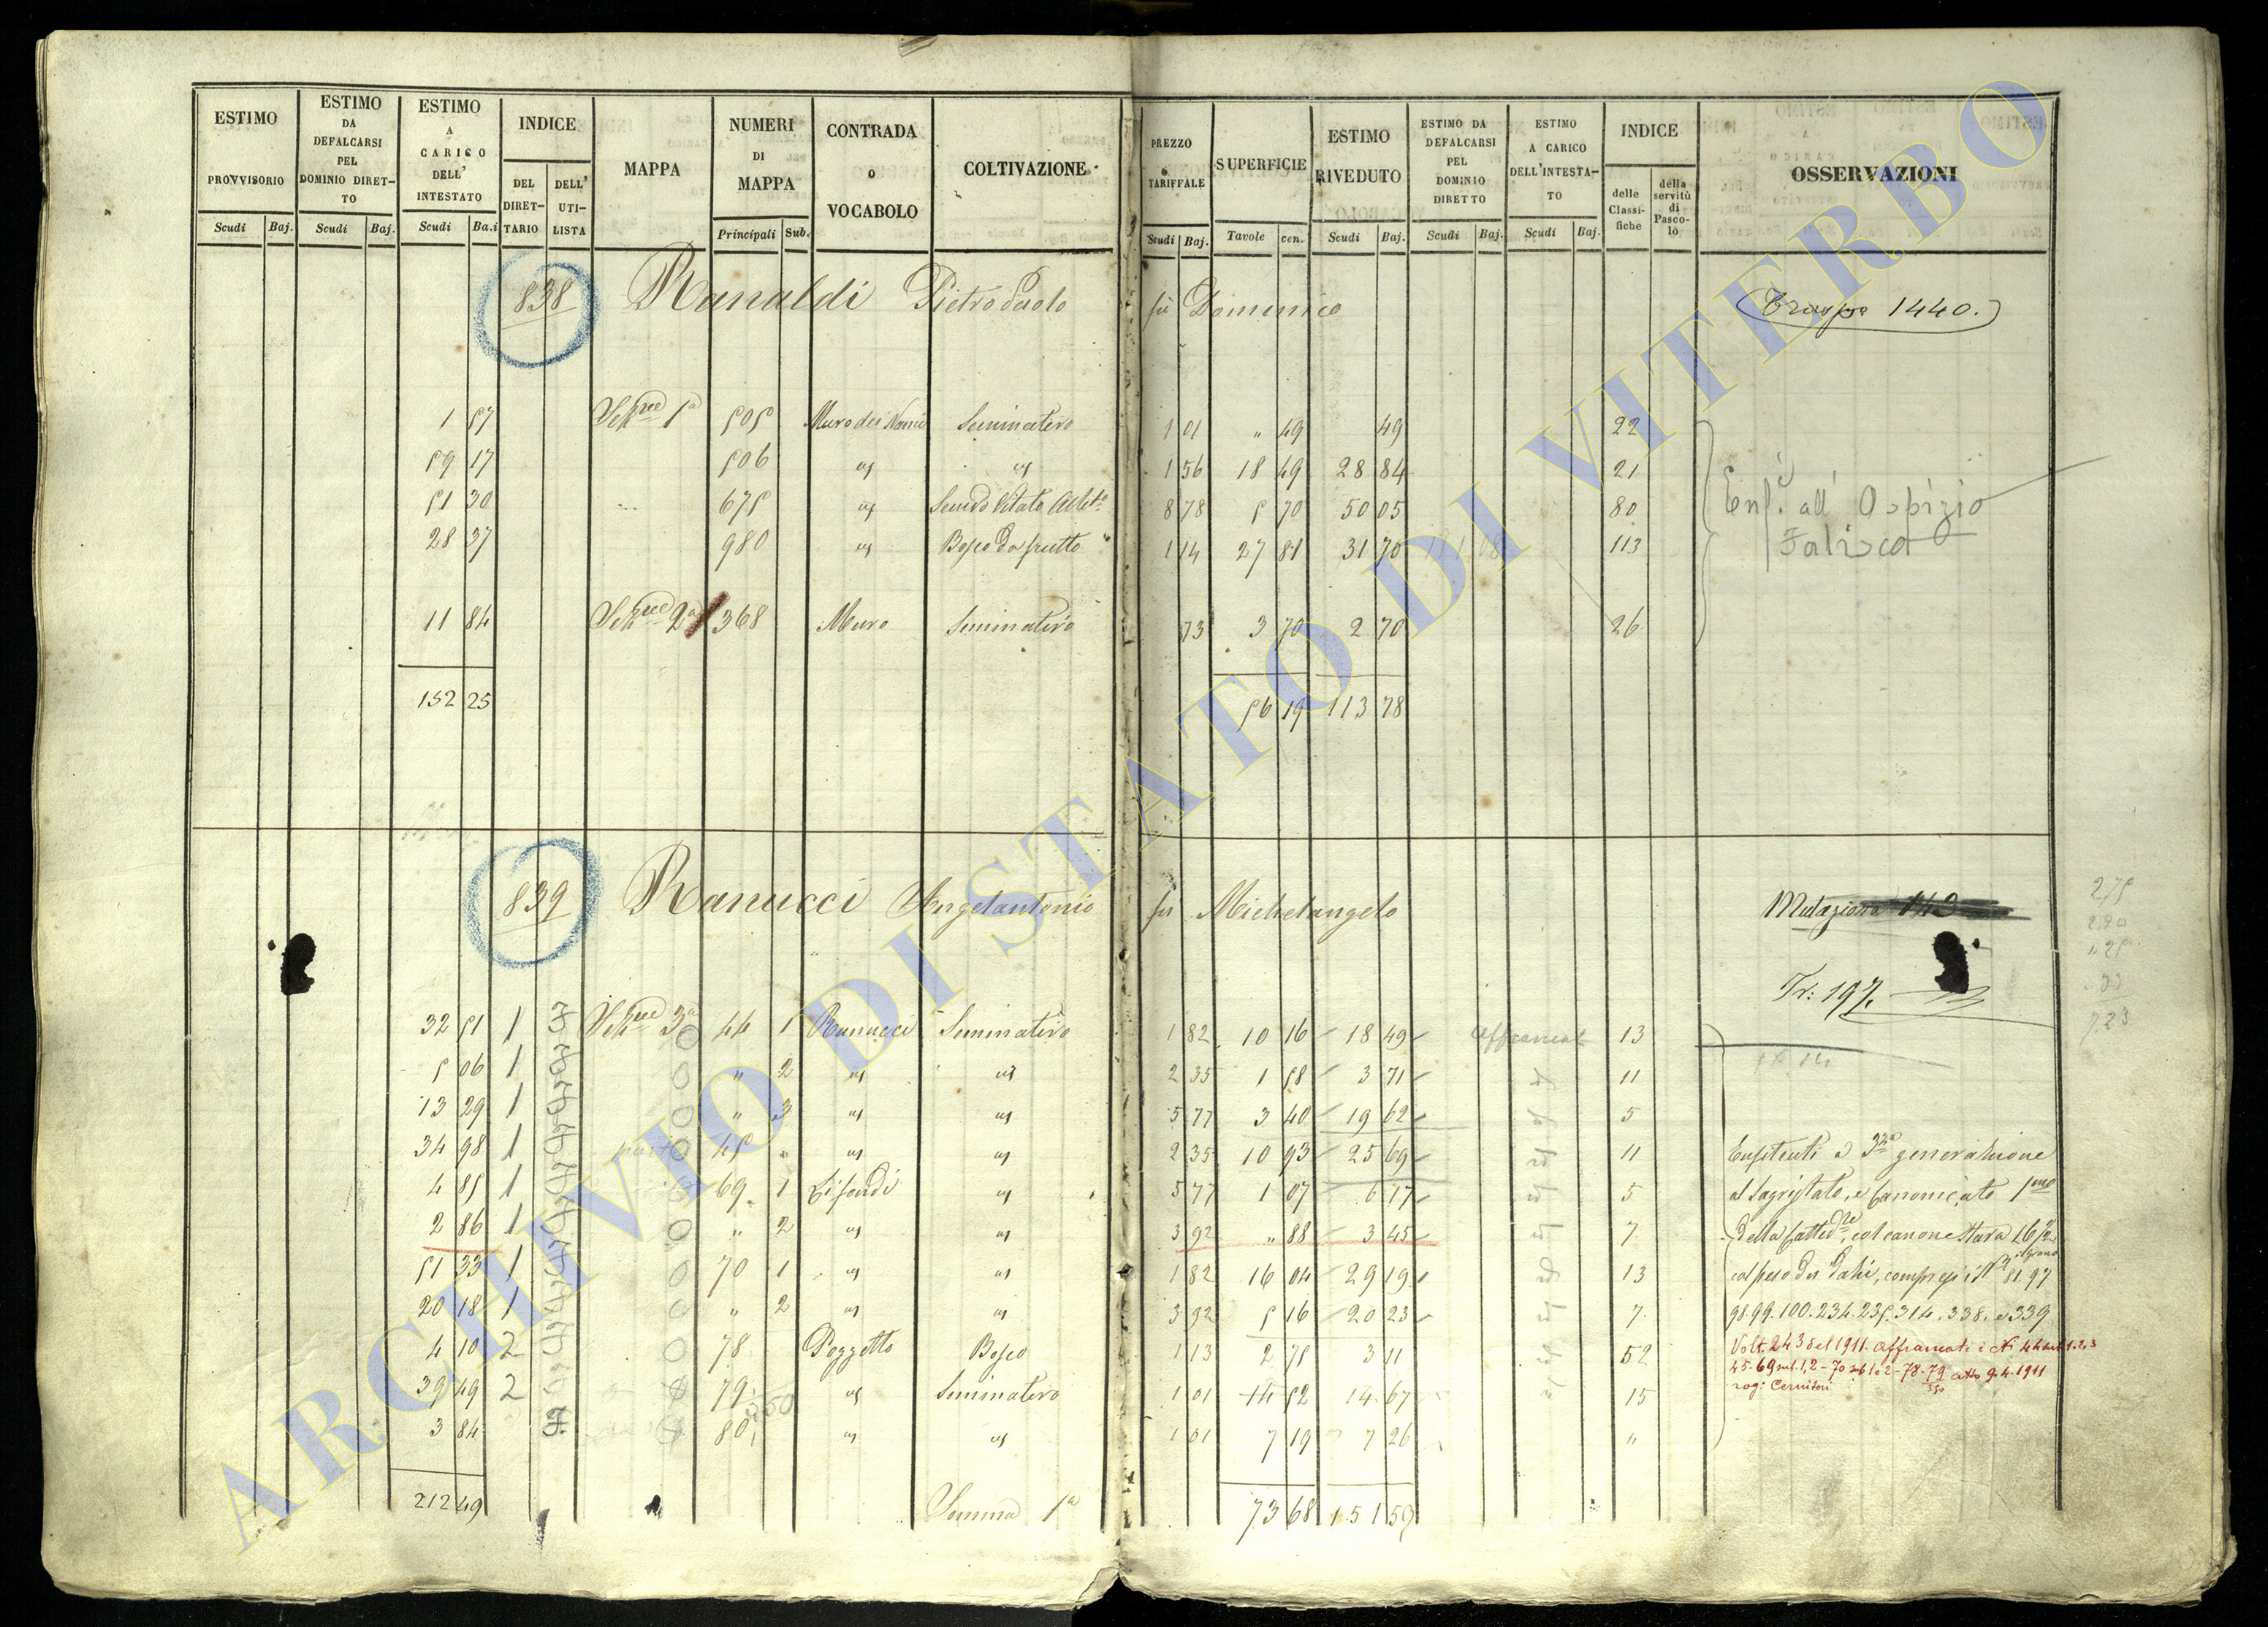 ESTIMO PROVVISORIO
Scudi Baj.
ESTIMO DA DEFALCARSI PEL DOMINIO DIRET-TO
Scudi Baj.
ESTIMO A CARICO DELL' INTESTATO
Scudi Ba.i
INDICE
DEL DIRET-TARIO
DELL' UTI-LISTA
MAPPA
NUMERI DI MAPPA
Principali Sub.
CONTRADA O VOCABOLO
COLTIVAZIONE
PREZZO TARIFFALE
Scudi Baj.
SUPERFICIE
Tavole cen.
ESTIMO RIVEDUTO
Scudi Baj.
ESTIMO DA DEFALCARSI PEL DOMINIO DIRETTO
Scudi Baj.
ESTIMO A CARICO DELL'INTESTA-TO
Scudi Baj.
INDICE
delle Classi-fiche
della servitù di Pasco-lo
OSSERVAZIONI
838 Ranaldi Pietro Paolo fù Domenico
1440.
1 57 505 Seminativo 1 01 " 49 49 22
59 17 506 1 56 18 49 28 84 21
51 30 675 8 78 5 70 50 05 80
28 37 980 Bosco da frutto 1 14 27 81 31 70 113
Enf. all' Ospizio
Falisco
11 84 2a 368 Muro Seminativo 73 3 70 2 70 26
152 25 56 19 113 78
839 Ranucci Angelantonio fù Michelangelo
Mutazione 143
Tr: 197.
275
2.20
.. 25
7 23
32 51 1 3a 44 1 Ranucci Seminativo 1 82 10 16 18 49 affrancat 13
5 06 1 " 2 2 35 1 58 3 71 11
13 29 1 " 3 5 77 3 40 19 62 5
34 98 1 45 " 2 35 10 93 25 69 11
4 85 1 69 1 5 77 1 07 6 17 5
2 86 1 " 2 3 92 " 88 3 45 7
51 33 1 70 1 1 82 16 04 29 19 13
20 18 1 " 2 3 92 5 16 20 23 7
4 10 2 78 Poggetto Bosco 1 13 2 75 3 11 52
39 49 2 79 Seminativo 1 01 14 52 14 67 15
3 84 80 1 01 7 19 7 26 "
350
Enfiteuti a 3za generazione
al Sagristato, e Canonicato
della Catted.le, col canone
col peso dei Dazi, compresi i N.i 81. 97
98. 99. 100. 234. 235. 314. 338. e 339
Volt. 243 del 1911. affrancati i Ni 44 sub. 1.2.3
45-69 sub. 1, 2 - 70 sub 1 e 2 - 78-79 atto 9.4.1911
350
212 49 Somma 1a 73 68 151 59
ARCHIVIO DI STATO DI VITERBO